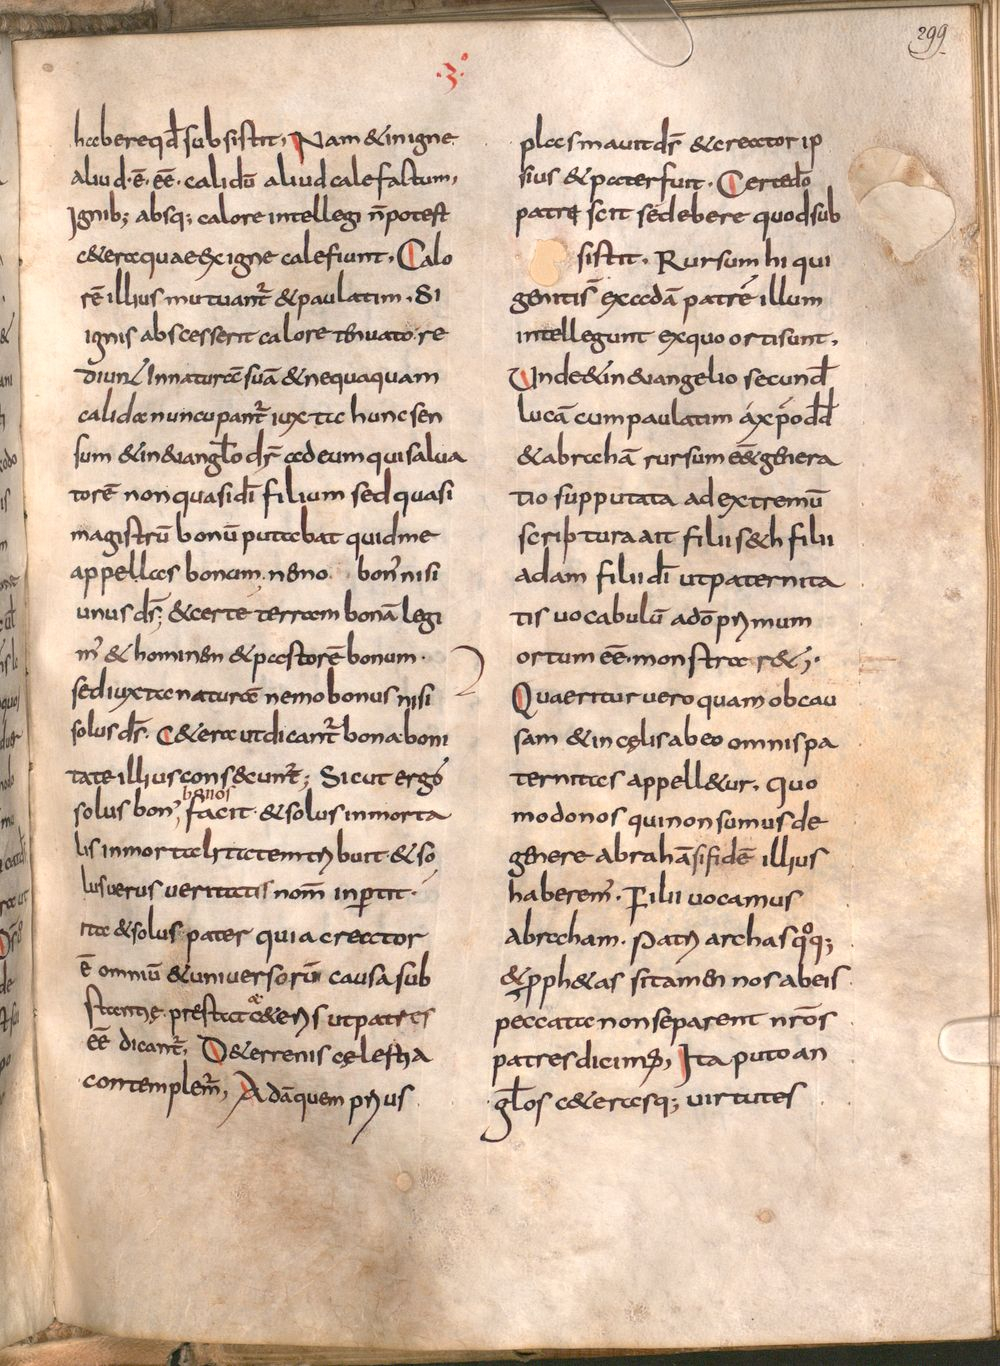 299
.3.
habereqd̄ subsistit, Nam & in igne
aliud.ē. ēē. calidū aliud calefactum,
Ignib; absq; calore intellegi n̄ potest
c&eraquae ex igne calefiunt. Calo
rē illius mutuant̄ & paulatim. Si
ignis abscesserit calore tenuato. re
diunt Innaturā suā & nequaquam
calida nuncupant̄ iuxta hunc sen
sum & in euangl̄o dr̄ ad eum qui salua
torē non quasi dī filium sed quasi
magistrū bonū putabat quid me
appellas bonum. nemo bon' nisi
unus ds̄; & certe terram bonā legi
m' & hominem & pastorē bonum.
sed iuxta naturā nemo bonus nisi
solus ds̄. C&era ut dicant̄ bona boni
tate illius consecunt̄; Sicut ergo
bonos
solus bon', facit. & solus inmorta
lis inmortalitatem tribuit. & so
lus uerus ueritatis nom̄ inpertit.
ita & solus pater quia creator
ē omniū & uniuersorū causa sub
stantię. prestat c&eris ut patres
ēē dicant̄, D&errenis cęlestia
contemplem̄, Adā quem prius
plasmauit ds̄ & creator ip
sius & pater fuit. Certe dō
patrē scit se debere quod sub
sistit. Rursum hi qui
geniti s̄ ex adā patrē illum
intellegunt ex quo orti sunt,
Unde & in euangelio secund̄
lucā cum paulatim a xp̄o dd̄
& abrahā rursum ēēt genera
tio supputata ad extremū
scriptura ait filii s&h filii
adam filii dī ut paternita
tis uocabulū a dō primum
ortum ēē. monstrar&;.
Quaeritur uero quam ob cau
sam & in cęlis ab eo omnis pa
ternitas appell&ur. Quo
modo nos qui non sumus de
genere abrahā si fidē illius
haberem'. Filii uocamus
abraham. Patriarchas qoq;
& pph&as si tamen nos ab eis
peccata non separent nr̄os
patres dicim', Ita puto an
gl̄os c&erasq; uirtutes